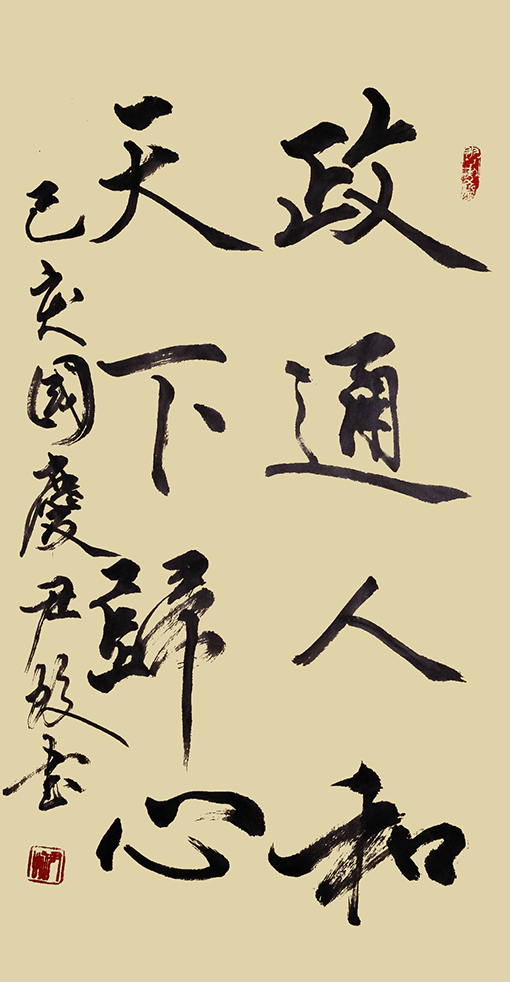 政通人和
天下歸心
己亥國慶尹放書